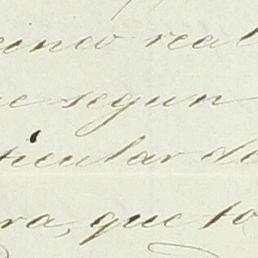 cinco real
e segun
ticular de
ra, que to